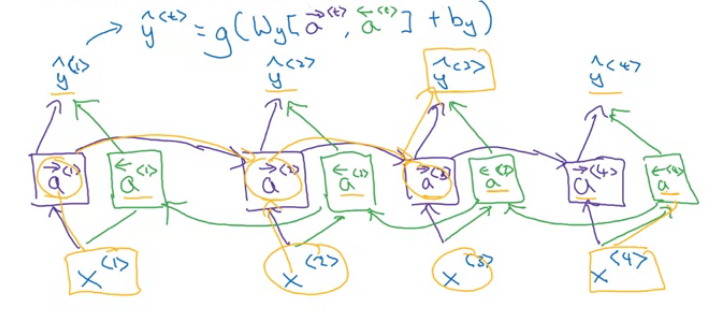 ŷ^{<t>} = g(W_y[a→^{<t>}, a←^{<t>}] + b_y)
ŷ^{<1>} ŷ^{<2>} ŷ^{<3>} ŷ^{<4>}
a→^{<1>} a←^{<1>} a→^{<2>} a←^{<2>} a→^{<3>} a←^{<3>} a→^{<4>} a←^{<4>}
x^{<1>} x^{<2>} x^{<3>} x^{<4>}